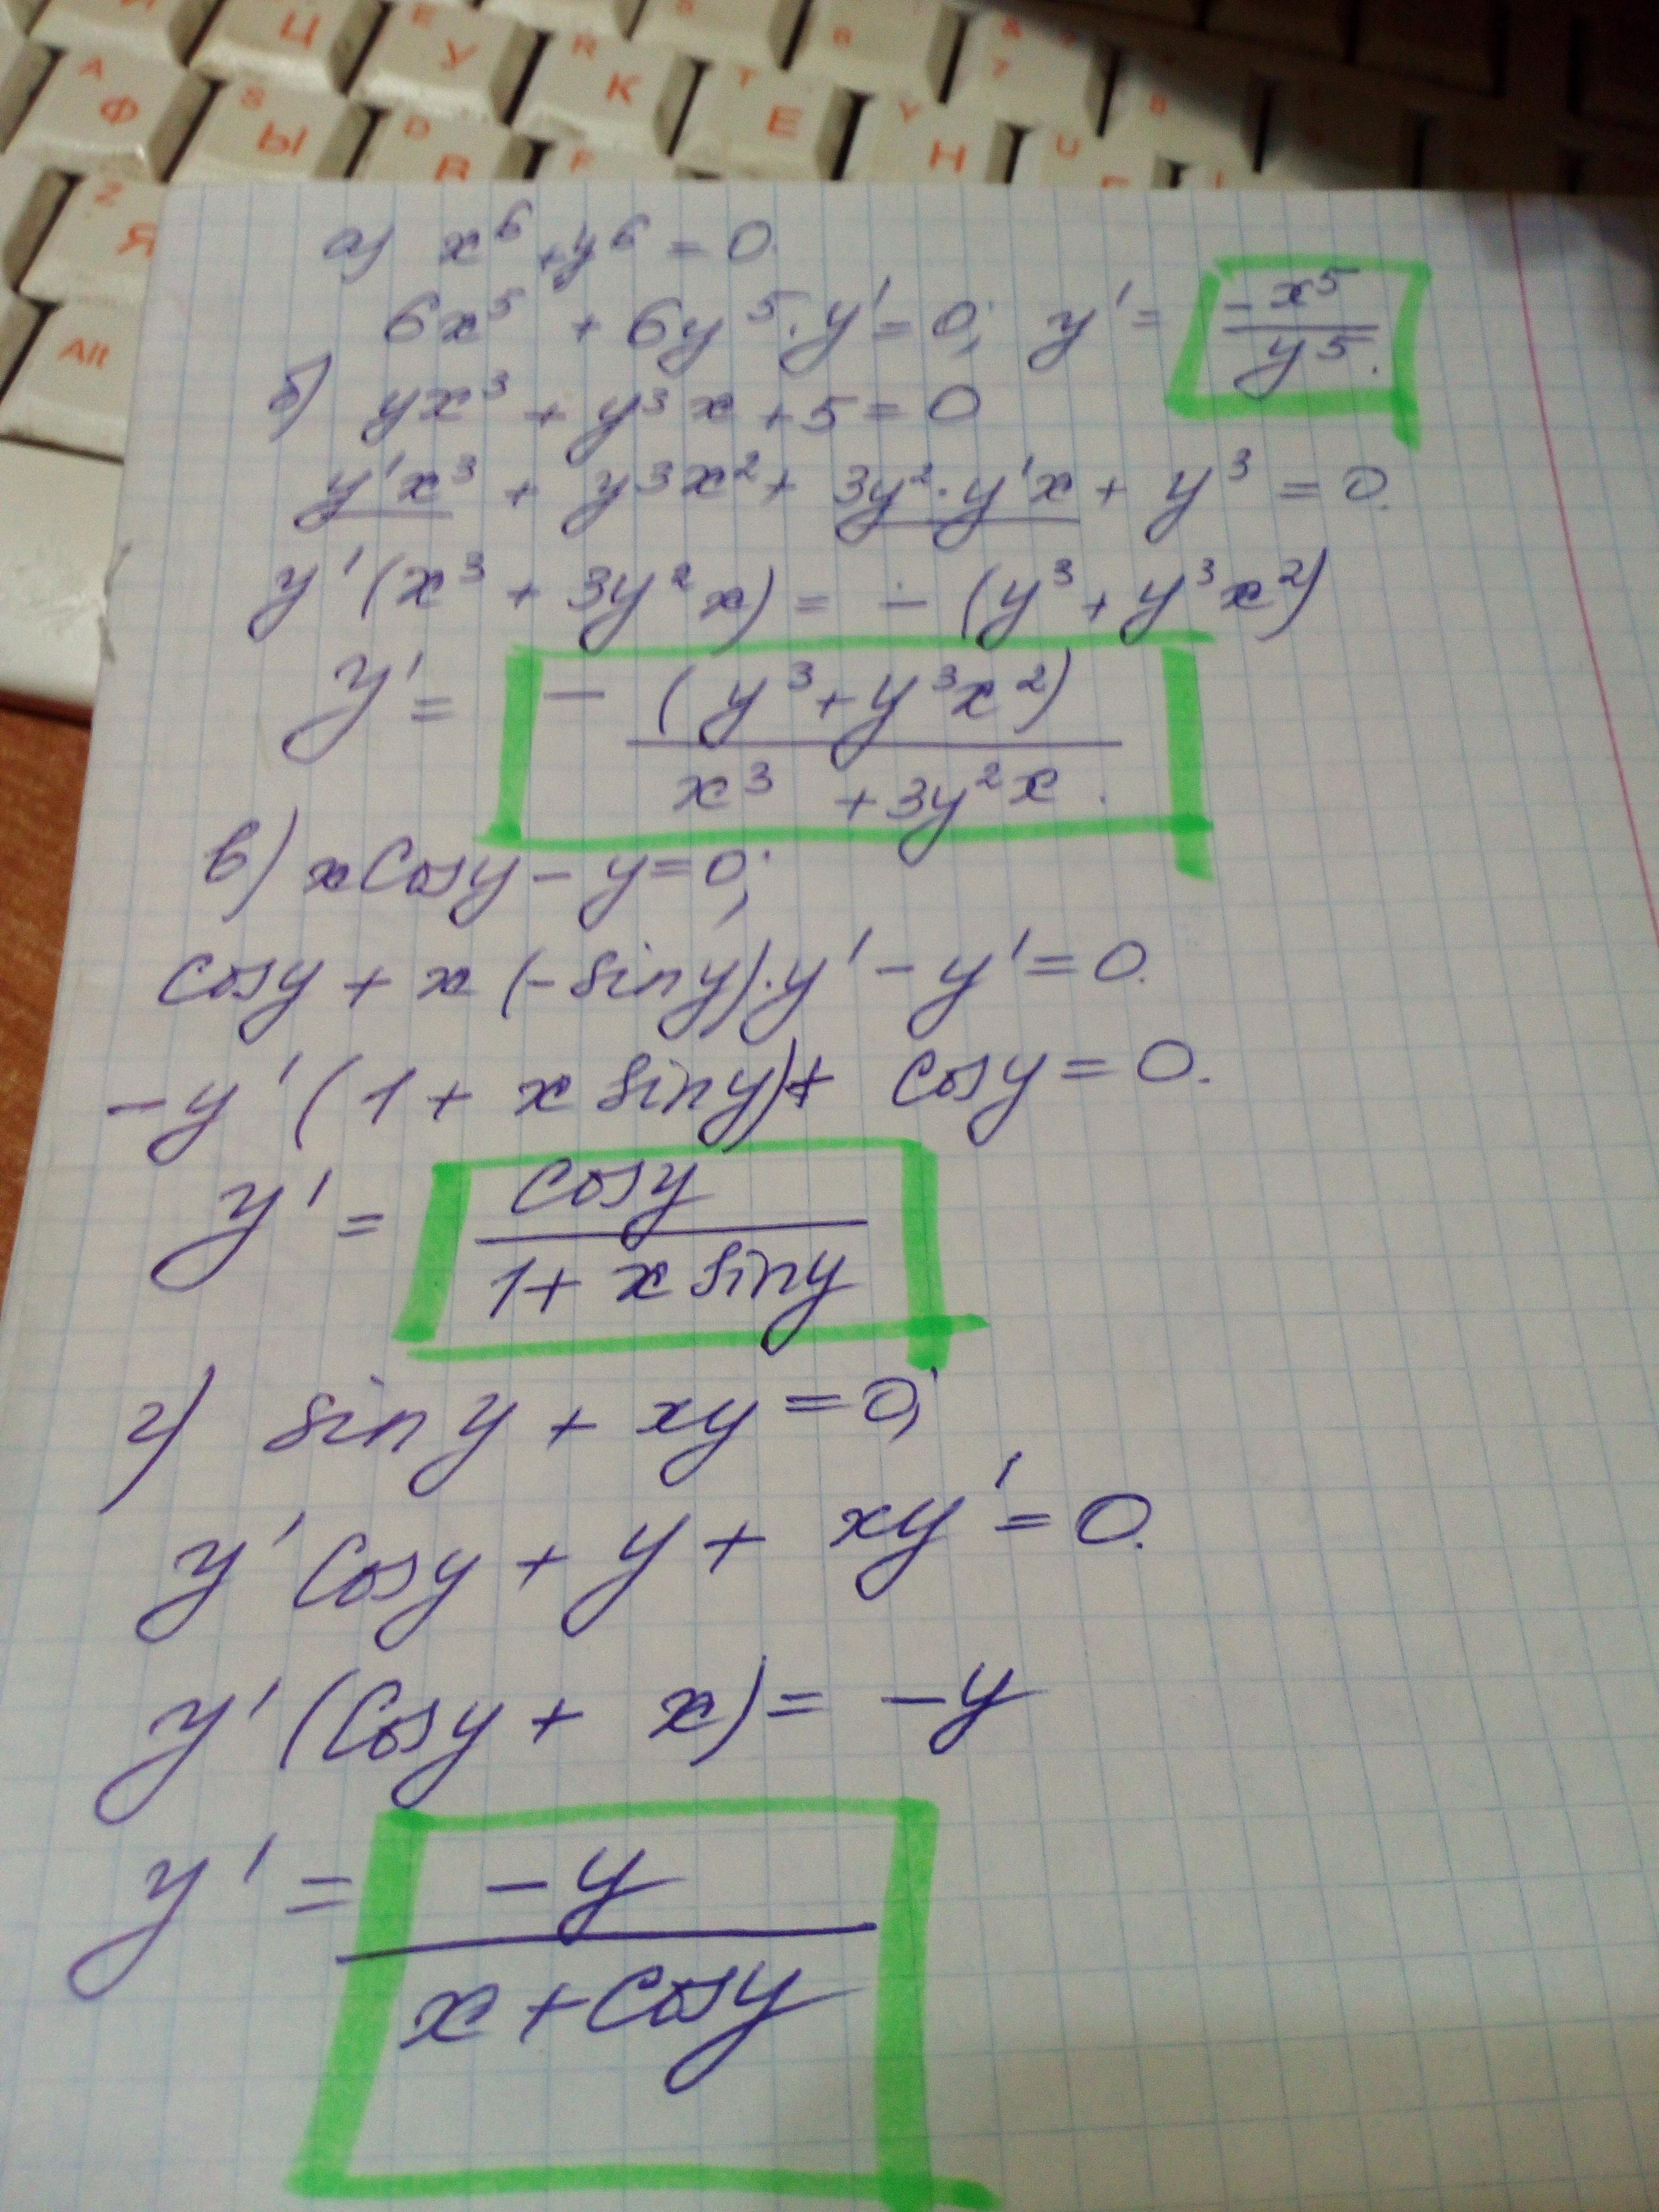 Ц E У R К T Е Y Н 6 & 7 8
A Ф S Ы D В F U
Z Я
Alt
а) x⁶ + y⁶ = 0.
6x⁵ + 6y⁵·y' = 0; y' = -x⁵/y⁵.
б) yx³ + y³x + 5 = 0
y'x³ + y3x² + 3y²·y'x + y³ = 0.
y'(x³ + 3y²x) = -(y³ + y³x²)
y' = -(y³ + y³x²)/(x³ + 3y²x).
в) x cosy - y = 0;
cosy + x(-siny)·y' - y' = 0.
-y'(1 + x siny) + cosy = 0.
y' = cosy/(1 + x siny)
г) siny + xy = 0;
y' cosy + y + xy' = 0.
y'(cosy + x) = -y
y' = -y/(x + cosy)